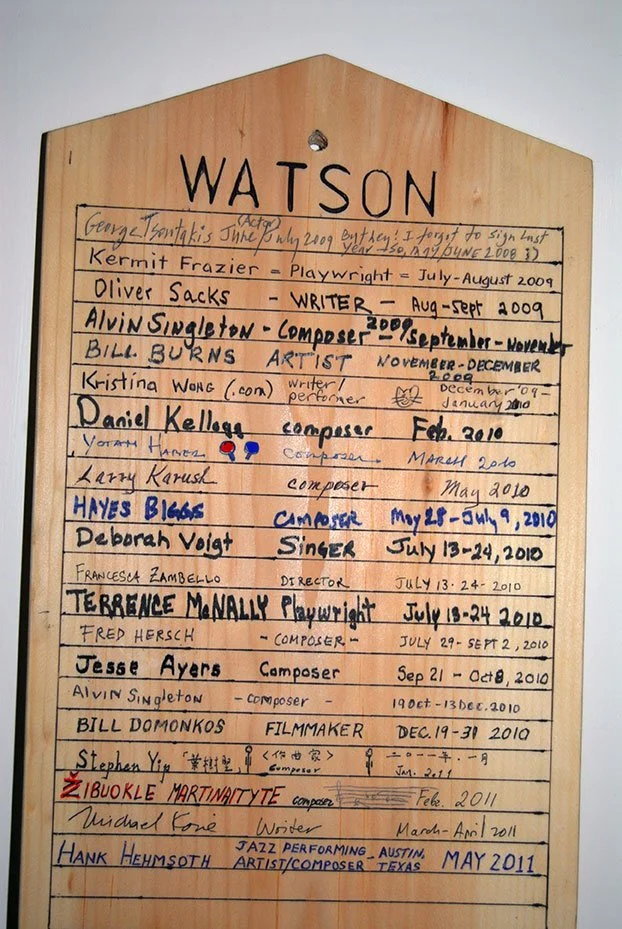 WATSON
(Actor)
George Tsontakis June/July 2009 But hey! I forgot to sign last
year - so, May/JUNE 2008 :)
Kermit Frazier = Playwright = July-August 2009
Oliver Sacks - WRITER - Aug-Sept 2009
Alvin Singleton - Composer - 2009/September-November
BILL BURNS ARTIST NOVEMBER-DECEMBER
2009
Kristina Wong (.com) writer/ December '09-
performer January 2010
Daniel Kellogg composer Feb. 2010
YOTAM HABER composer MARCH 2010
Larry Karush composer May 2010
HAYES BIGGS COMPOSER May 28-July 9, 2010
Deborah Voigt SINGER July 13-24, 2010
FRANCESCA ZAMBELLO DIRECTOR JULY 13-24-2010
TERRENCE McNALLY Playwright July 13-24 2010
FRED HERSCH - COMPOSER - JULY 29-SEPT 2, 2010
Jesse Ayers Composer Sep 21 - Oct 8, 2010
Alvin Singleton - composer - 19 Oct - 13 Dec. 2010
BILL DOMONKOS FILMMAKER DEC. 19-31 2010
Stephen Yip 「葉樹堅」 〈作曲家〉 二〇一一年．一月
Composer Jan. 2011
ŽIBUOKLE MARTINAITYTE composer Feb. 2011
Michael Korie Writer March-April 2011
HANK HEHMSOTH JAZZ PERFORMING - AUSTIN, MAY 2011
ARTIST/COMPOSER TEXAS